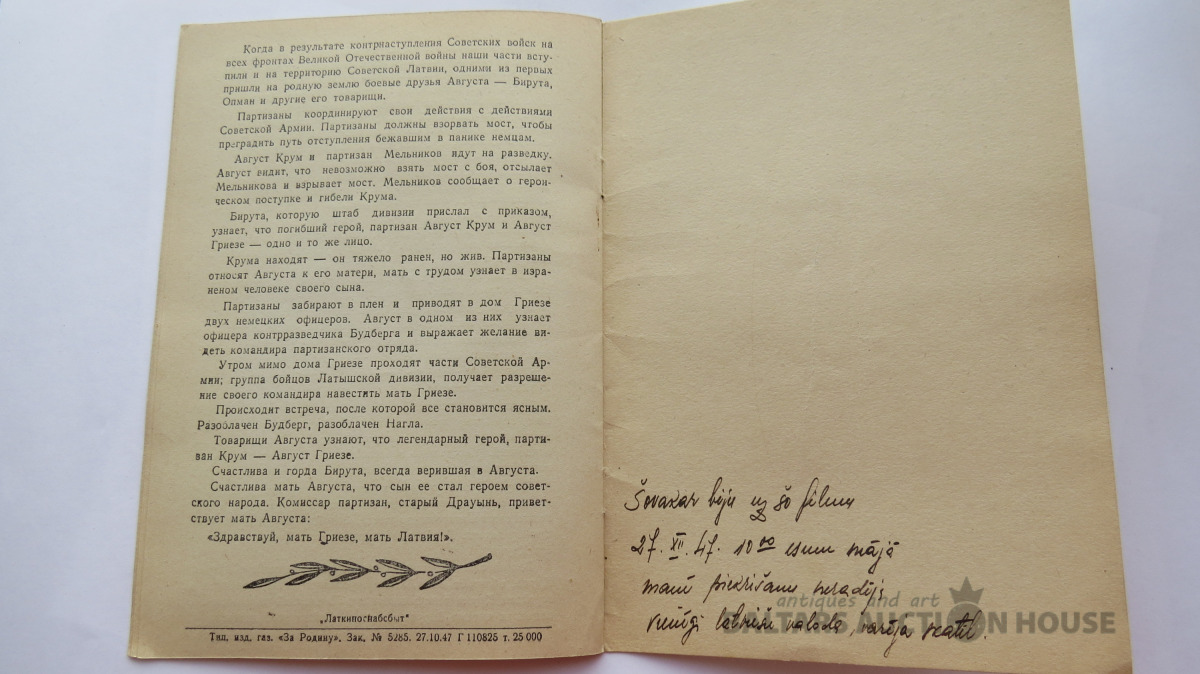 Когда в результате контрнаступления Советских войск на
всех фронтах Великой Отечественной войны наши части всту-
пили и на территорию Советской Латвии, одними из первых
пришли на родную землю боевые друзья Августа — Бирута,
Опман и другие его товарищи.
Партизаны координируют свои действия с действиями
Советской Армии. Партизаны должны взорвать мост, чтобы
преградить путь отступления бежавшим в панике немцам.
Август Крум и партизан Мельников идут на разведку.
Август видит, что невозможно взять мост с боя, отсылает
Мельникова и взрывает мост. Мельников сообщает о герои-
ческом поступке и гибели Крума.
Бирута, которую штаб дивизии прислал с приказом,
узнает, что погибший герой, партизан Август Крум и Август
Гриезе — одно и то же лицо.
Крума находят — он тяжело ранен, но жив. Партизаны
относят Августа к его матери, мать с трудом узнает в изра-
неном человеке своего сына.
Партизаны забирают в плен и приводят в дом Гриезе
двух немецких офицеров. Август в одном из них узнает
офицера контрразведчика Будберга и выражает желание ви-
деть командира партизанского отряда.
Утром мимо дома Гриезе проходят части Советской Ар-
мии; группа бойцов Латышской дивизии, получает разреше-
ние своего командира навестить мать Гриезе.
Происходит встреча, после которой все становится ясным.
Разоблачен Будберг, разоблачен Нагла.
Товарищи Августа узнают, что легендарный герой, парти-
ван Крум — Август Гриезе.
Счастлива и горда Бирута, всегда верившая в Августа.
Счастлива мать Августа, что сын ее стал героем совет-
ского народа. Комиссар партизан, старый Драуынь, привет-
ствует мать Августа:
«Здравствуй, мать Гриезе, мать Латвия!».
„Латкиноснабсбыт"
Тип. изд. газ. «За Родину», Зак. № 5285. 27.10.47 Г 110825 т. 25 000
Šovakar biju uz šo filmu
27. XII. 47. 10 00 esmu mājā
manī piekrišanu neradīja
vienīgi latviešu valoda, varēja skatīt.
antiques and art
BALTARS AUCTION HOUSE